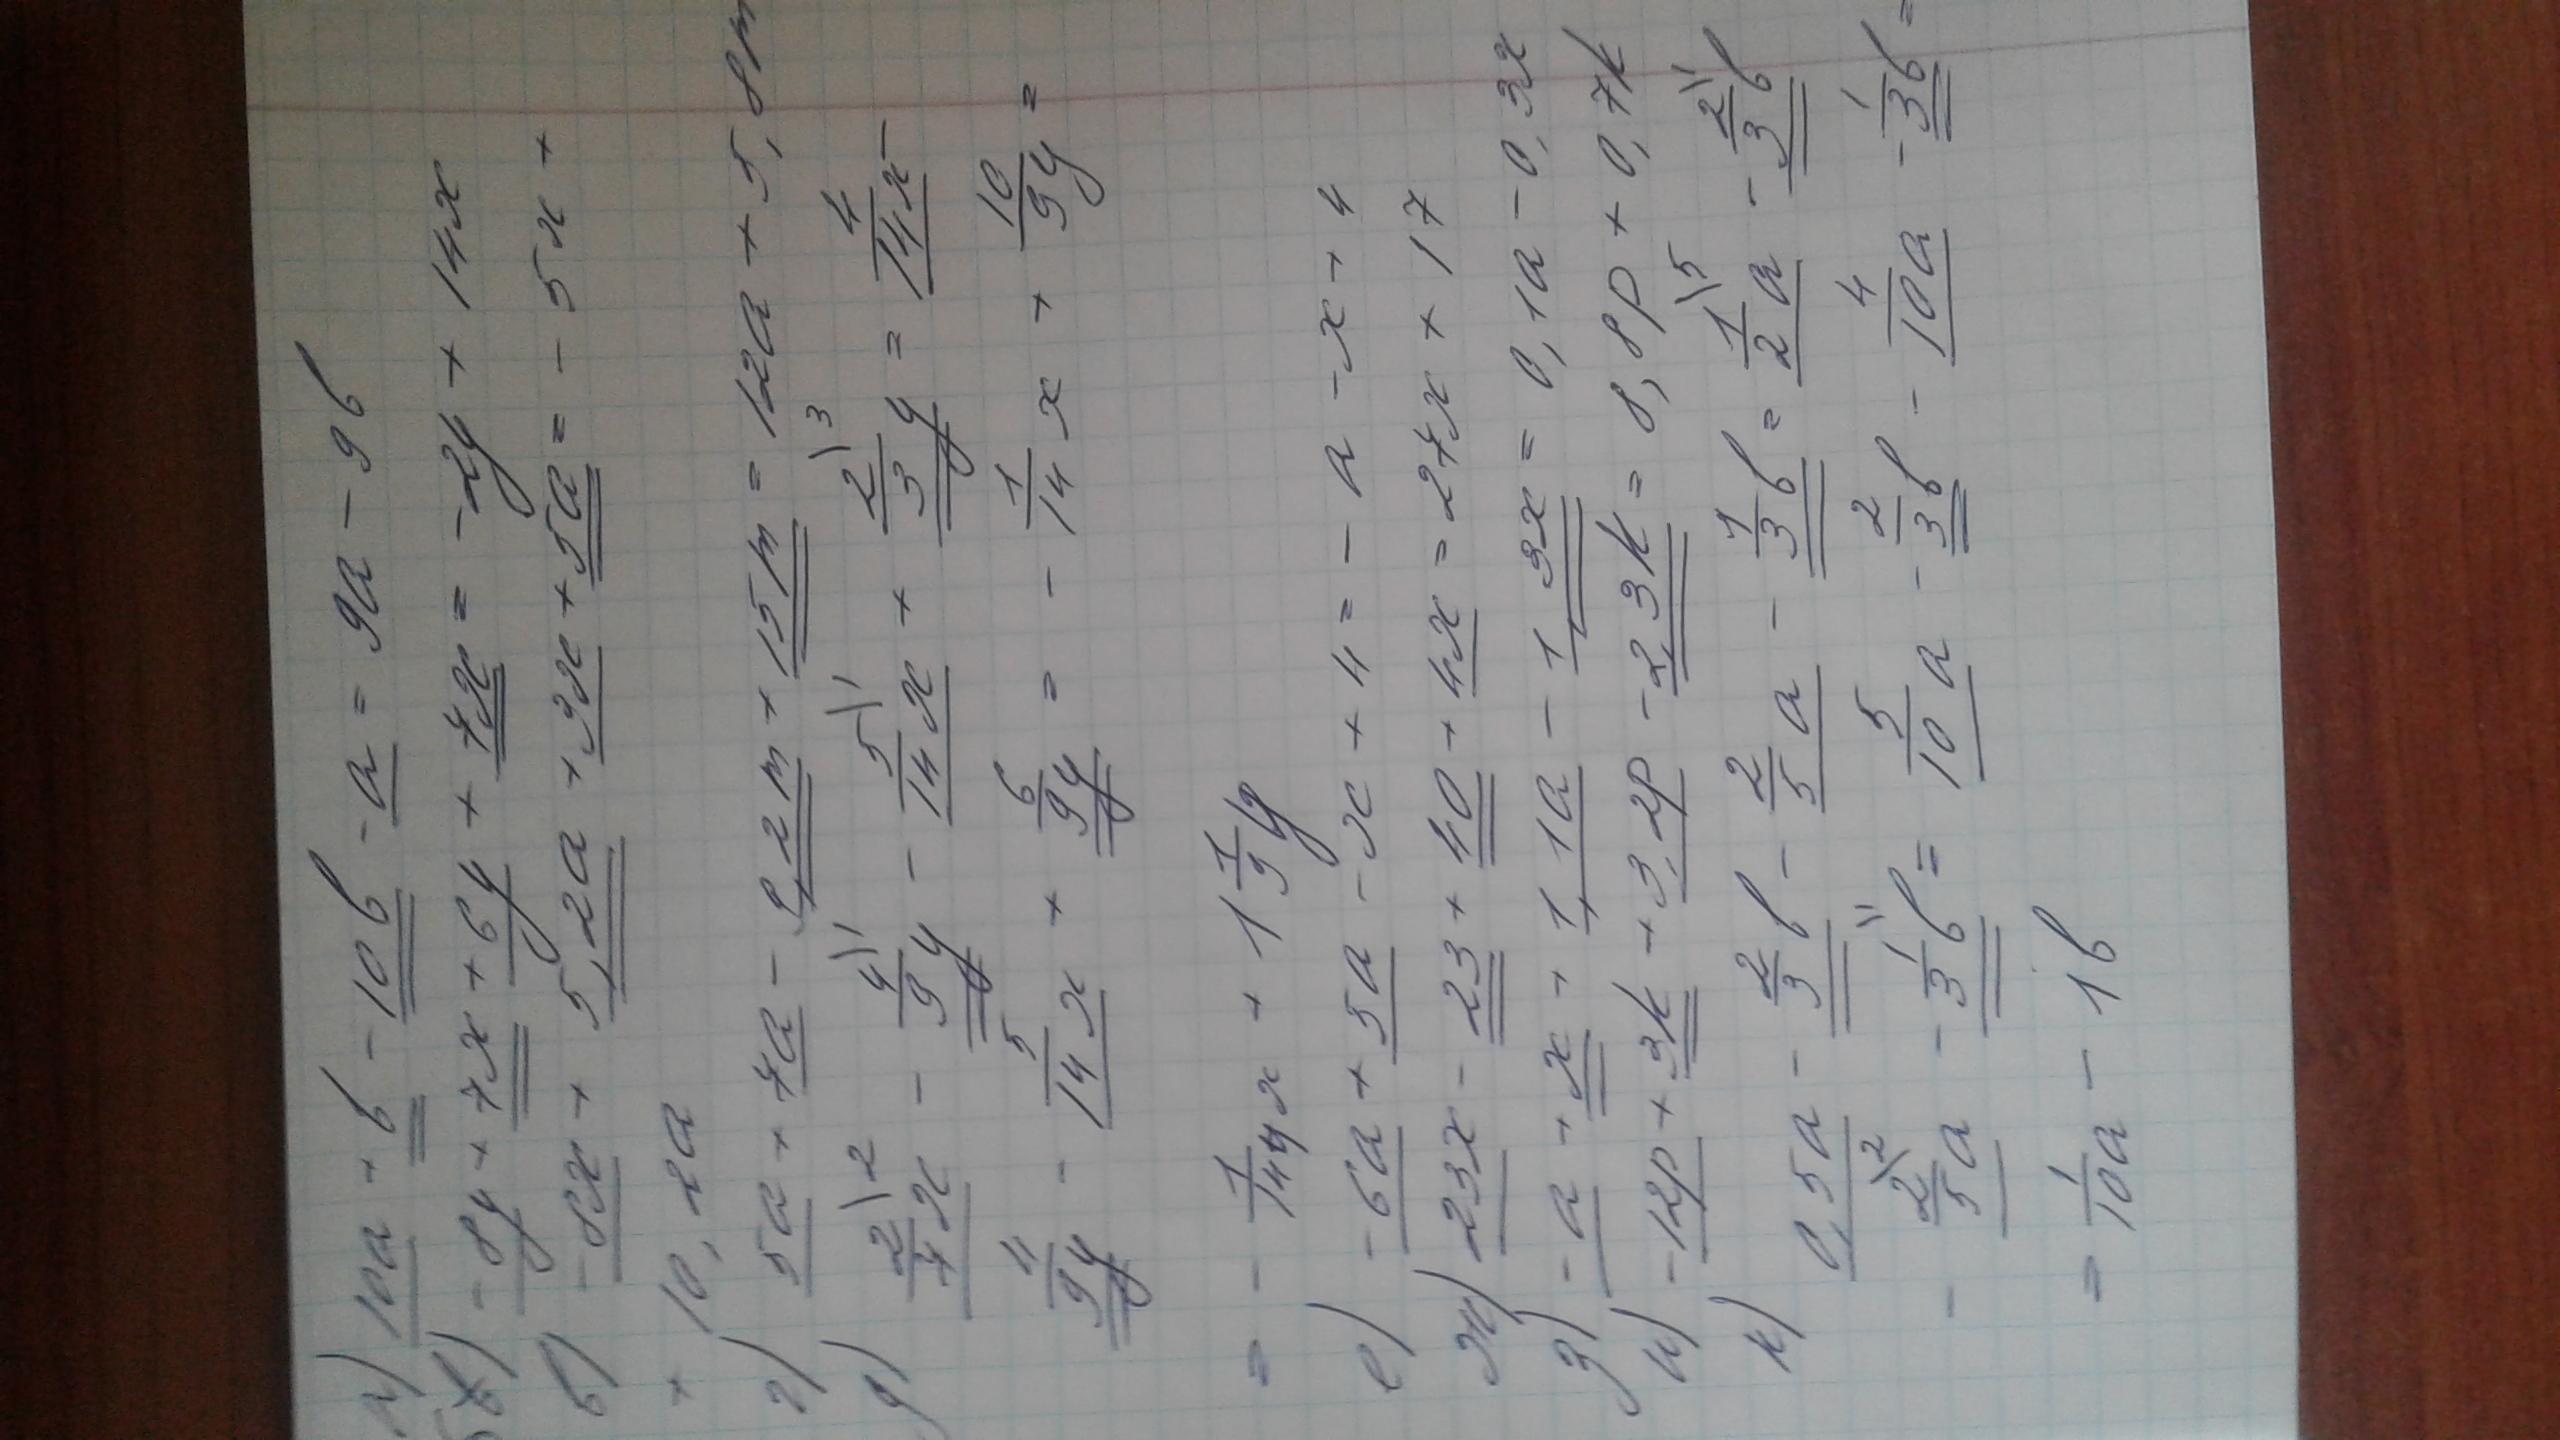 а) 10a + b - 10b - a = 9a - 9b
б) -8y + 7x + 6y + 7x = -2y + 14x
в) -8x + 5,2a + 3x + 5a = -5x +
+ 10,2a
г) 5a + 7a - 9,2m + 15m = 12a + 5,8m
д) 2/7x\2 - 4/9y\1 - 5/14x\1 + 2/3y\3 = 4/14x -
4/9y - 5/14x + 6/9y = - 1/14x + 10/9y =
= - 1/14x + 1 1/9y
е) -6a + 5a - x + 4 = -a - x + 4
ж) 23x - 23 + 40 + 4x = 27x + 17
з) -a + x + 1,1a - 1,3x = 0,1a - 0,3x
и) -12p + 3k + 3,2p - 2,3k = 8,8p + 0,7k
к) 0,5a - 2/3b - 2/5a - 1/3b = 1/2a\5 - 2/3b\1
- 2/5a\2 - 1/3b\1 = 5/10a - 2/3b - 4/10a - 1/3b =
= 1/10a - 1b